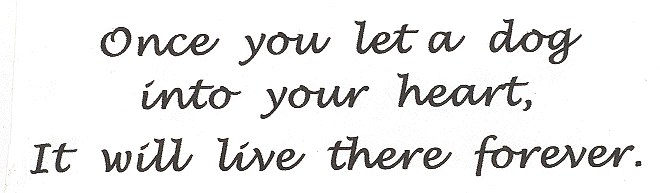 Once you let a dog
into your heart,
It will live there forever.